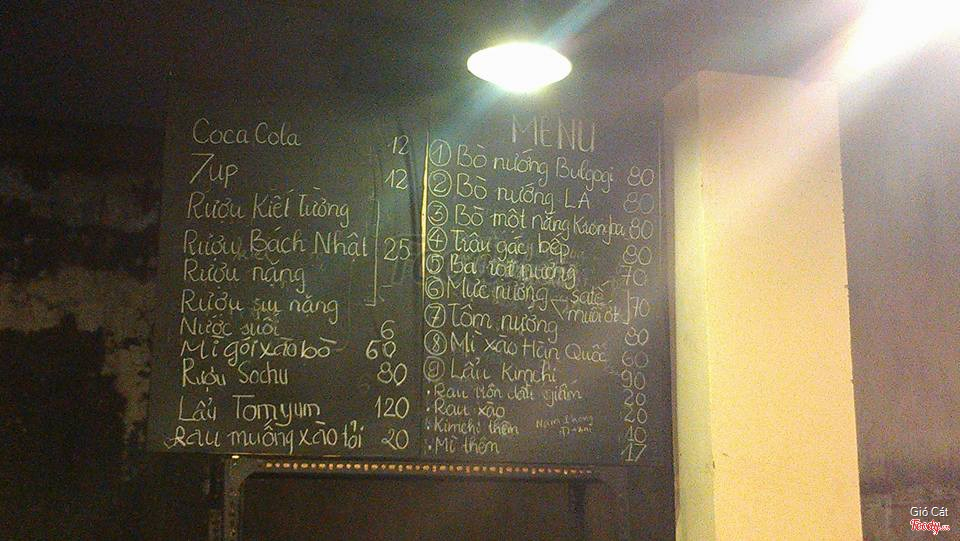 Coca Cola 12
7up 12
Rượu Kiết Tường
Rượu Bách Nhật 25
Rượu nặng
Rượu sụ nặng
Nước suối 6
Mì gói xào bò 60
Rượu Sochu 80
Lẩu Tomyum 120
Rau muống xào tỏi 20
MENU
① Bò nướng Bulgogi 80
② Bò nướng LA 80
③ Bò một nắng Krongba 80
④ Trâu gác bếp 80
⑤ Ba rọi nướng 70
⑥ Mực nướng satế
muối ớt 70
⑦ Tôm nướng 80
⑧ Mì xào Hàn Quốc 60
⑨ Lẩu Kimchi 90
• Rau trộn dầu giấm 20
• Rau xào 20
• Kimchi thêm 10
• Mì thêm 17
Gió Cát
Foody.vn